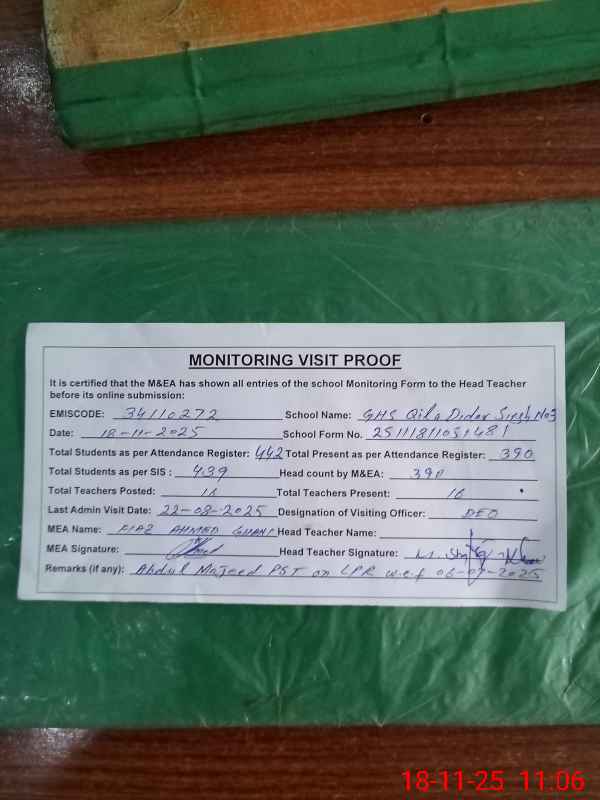 MONITORING VISIT PROOF
It is certified that the M&EA has shown all entries of the school Monitoring Form to the Head Teacher
before its online submission:
EMISCODE: 34110272 School Name: GHS Qila Didar Singh No3
Date: 18-11-2025 School Form No.
Total Students as per Attendance Register: 442 Total Present as per Attendance Register: 390
Total Students as per SIS : 439 Head count by M&EA: 390
Total Teachers Posted: 16 Total Teachers Present: 16
Last Admin Visit Date: 22-08-2025 Designation of Visiting Officer: DEO
MEA Name: FIAZ AHMED Head Teacher Name:
MEA Signature: Head Teacher Signature:
Remarks (if any): Abdul Majeed PST on LPR w.e.f
18-11-25 11:06